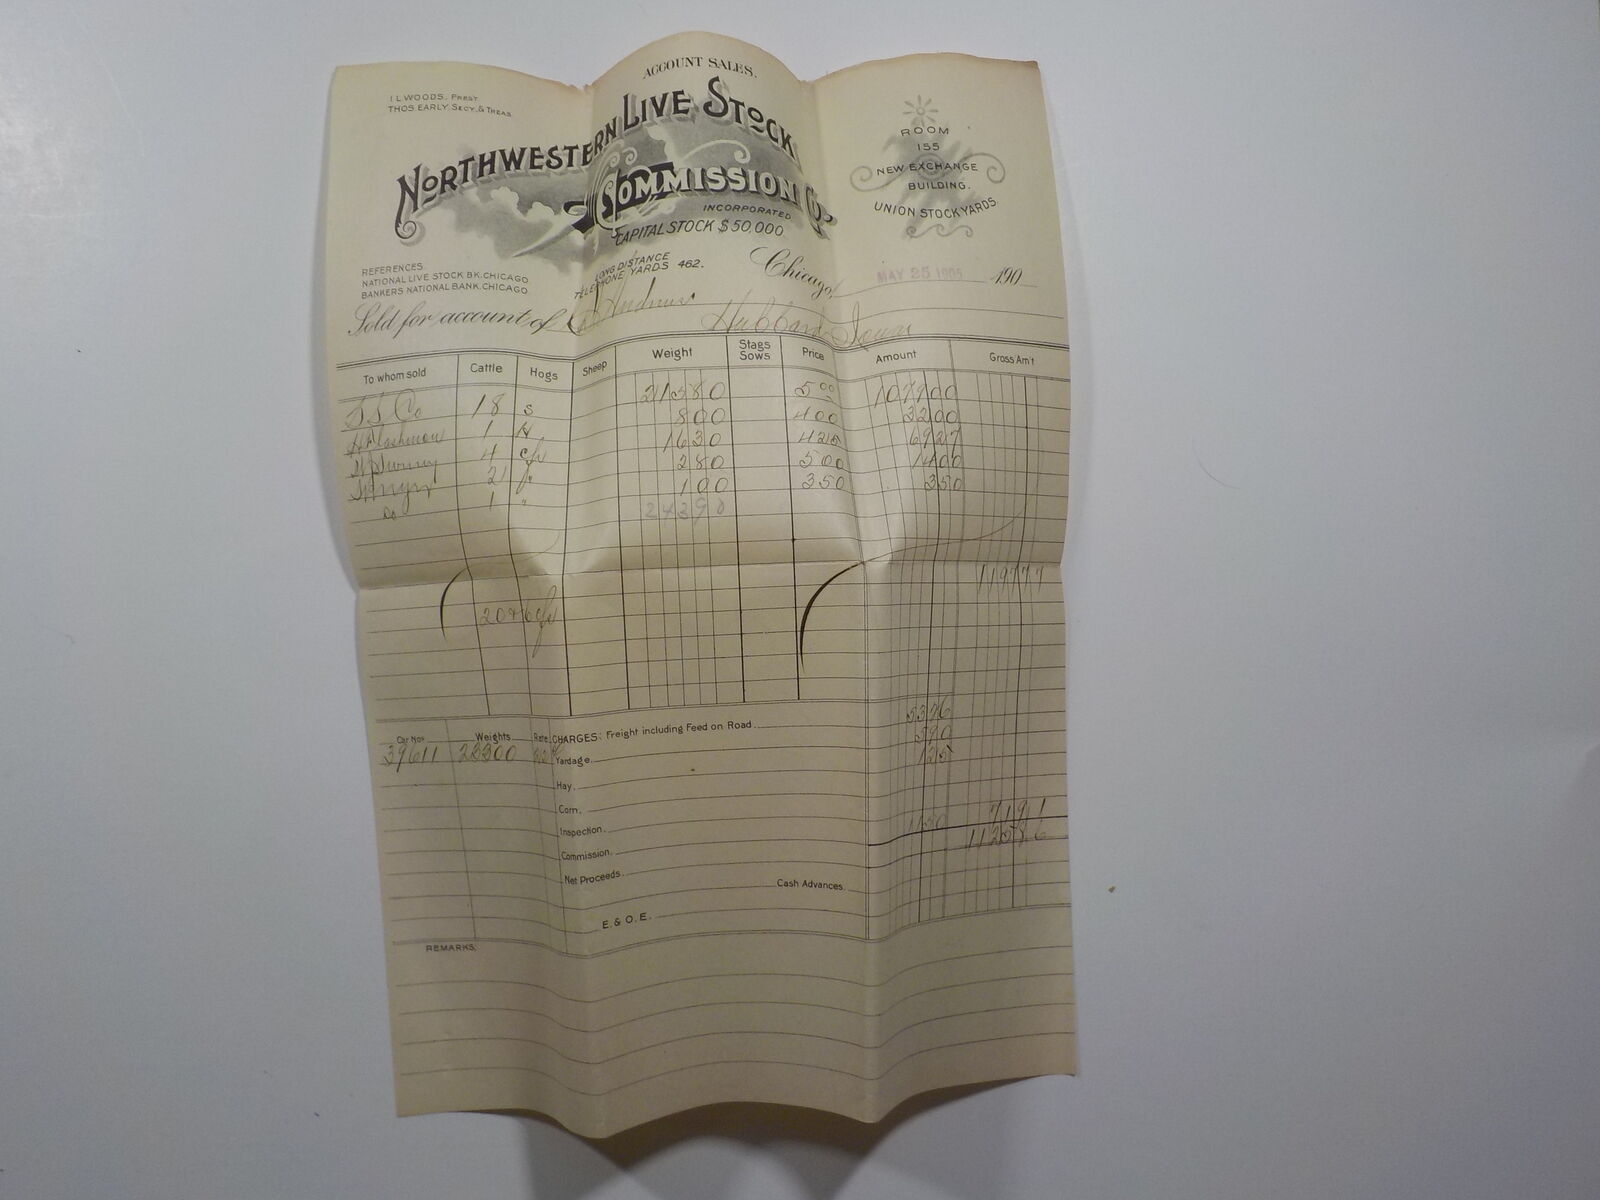 ACCOUNT SALES.
I L WOODS, PREST
THOS. EARLY SECY. & TREAS
NORTHWESTERN LIVE STOCK
COMMISSION CO.
INCORPORATED
CAPITAL STOCK $50,000
ROOM
155
NEW EXCHANGE
BUILDING.
UNION STOCK YARDS
REFERENCES
NATIONAL LIVE STOCK BK. CHICAGO
BANKERS NATIONAL BANK. CHICAGO
LONG DISTANCE
TELEPHONE YARDS 462.
Chicago, MAY 25 1905 190
Sold for account of
Hubbard Iowa
To whom sold Cattle Hogs Sheep Weight Stags Sows Price Amount Gross Am't
S S Co 18 s 21580 5 00 1079 00
1 H 800 4 00 32 00
4 1630 4 25 69 27
2 280 5 00 14 00
Do 1 " 100 3 50 3 50
24390
1197 77
20
Car Nos Weights Rate CHARGES: Freight including Feed on Road 53 96
39611 22300 Yardage 5 90
Hay. 1 25
Corn.
Inspection.
Commission. 11 50 71 91
Net Proceeds. 1125 86
Cash Advances
E. & O. E.
REMARKS.